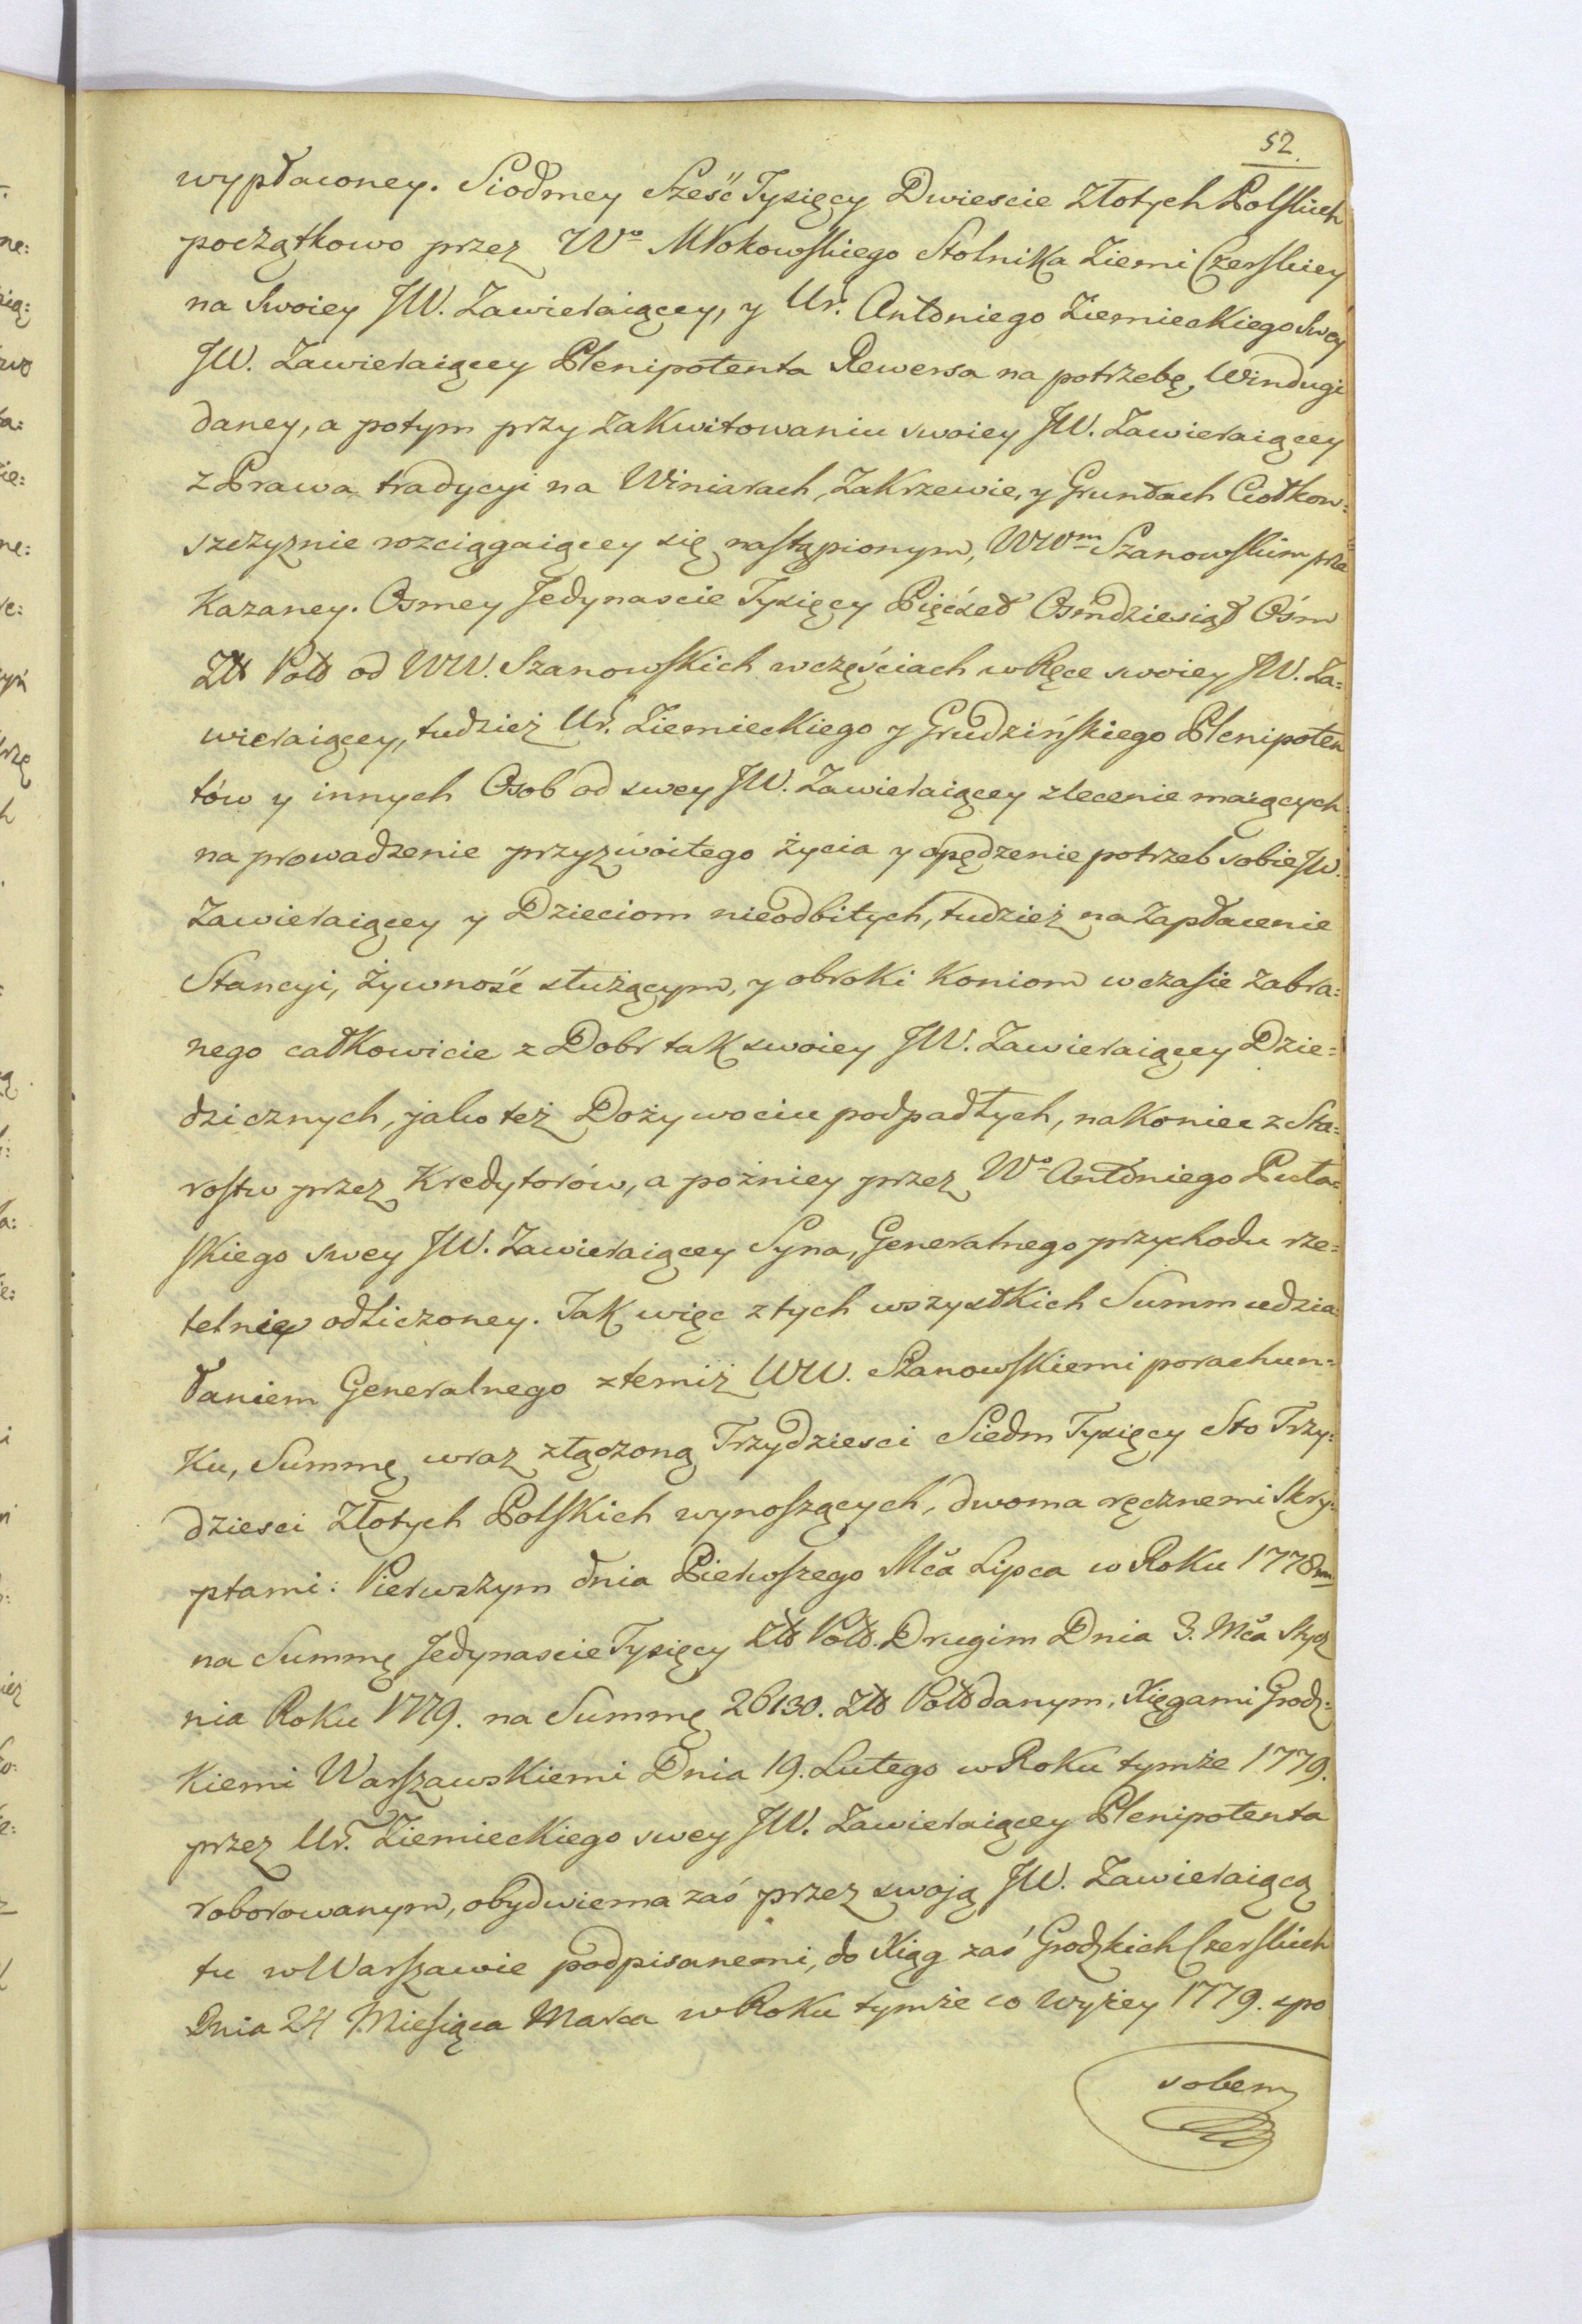 52.
wypłaconey. Siodmey Sześć Tysięcy Dwiescie Złotych Polskich
początkowo przez Wo Mlokowskiego Stolnika Ziemi Czerskiey
na Swoiey JW. Zawieraiącey, y Ur. Antoniego Ziemieckiego Swey
JW. Zawieraiącey Plenipotenta Rewersa na potrzebę, Windugi
daney, a potym przy zakwitowaniu swoiey JW. Zawieraiącey
z Prawa tradycyi na Winiarach, Zakrzewie, y Gruntach Ciołkow=
szczyznie rozciągaiącey się nastąpionym, WWm Szanowskim prze=
kazaney. Osmey Jedynascie Tysięcy Pięćset Osmdziesiąt Ośm
Złt Polt od WW. Szanowskich w częściach w Ręce swoiey JW. Za=
wieraiącey, tudzież Ur. Ziemieckiego y Grudzińskiego Plenipoten
tów y innych Osob od swey JW. Zawieraiącey zlecenie maiących
na prowadzenie przyzwoitego życia y opędzenie potrzeb sobie JW.
Zawieraiącey y Dzieciom nieodbitych, tudzież na zapłacenie
Stancyi, żywność służącym, y obroki koniom w czasie zabra=
nego całkowicie z Dobr tak swoiey JW. Zawieraiącey Dzie=
dzicznych, jako też Dożywociu podpadłych, nakoniec z Sta=
rostw przez Kredytorów, a pożniey przez Wo Antoniego Puła=
skiego swey JW. Zawieraiącey Syna, Generalnego przychodu rze=
telniey odliczoney. Tak więc z tych wszystkich Summ udzia
łaniem Generalnego z temiż WW. Szanowskiemi porachun=
ku, Summę wraz złączoną Trzydziesci Siedm Tysięcy Sto Trzy=
dziesci Złotych Polskich wynoszących, dwoma ręcznemi Skry=
ptami: Pierwszym dnia Pierwszego Mca Lipca w Roku 1778m
na Summę Jedynascie Tysięcy Złt Polt. Drugim Dnia 3. Mca Stycz
nia Roku 1779. na Summę 26130. Złt Polt danym, Xięgami Grodz=
kiemi Warszawskiemi Dnia 19. Lutego w Roku tymże 1779.
przez Ur. Ziemieckiego swey JW. Zawieraiącey Plenipotenta
roborowanym, obydwiema zaś przez swoją JW. Zawieraiącą
tu w Warszawie podpisanemi, do Xiąg zaś Grodzkich Czerskich
Dnia 24 Miesiąca Marca w Roku tymże co wyżey 1779. spo
sobem